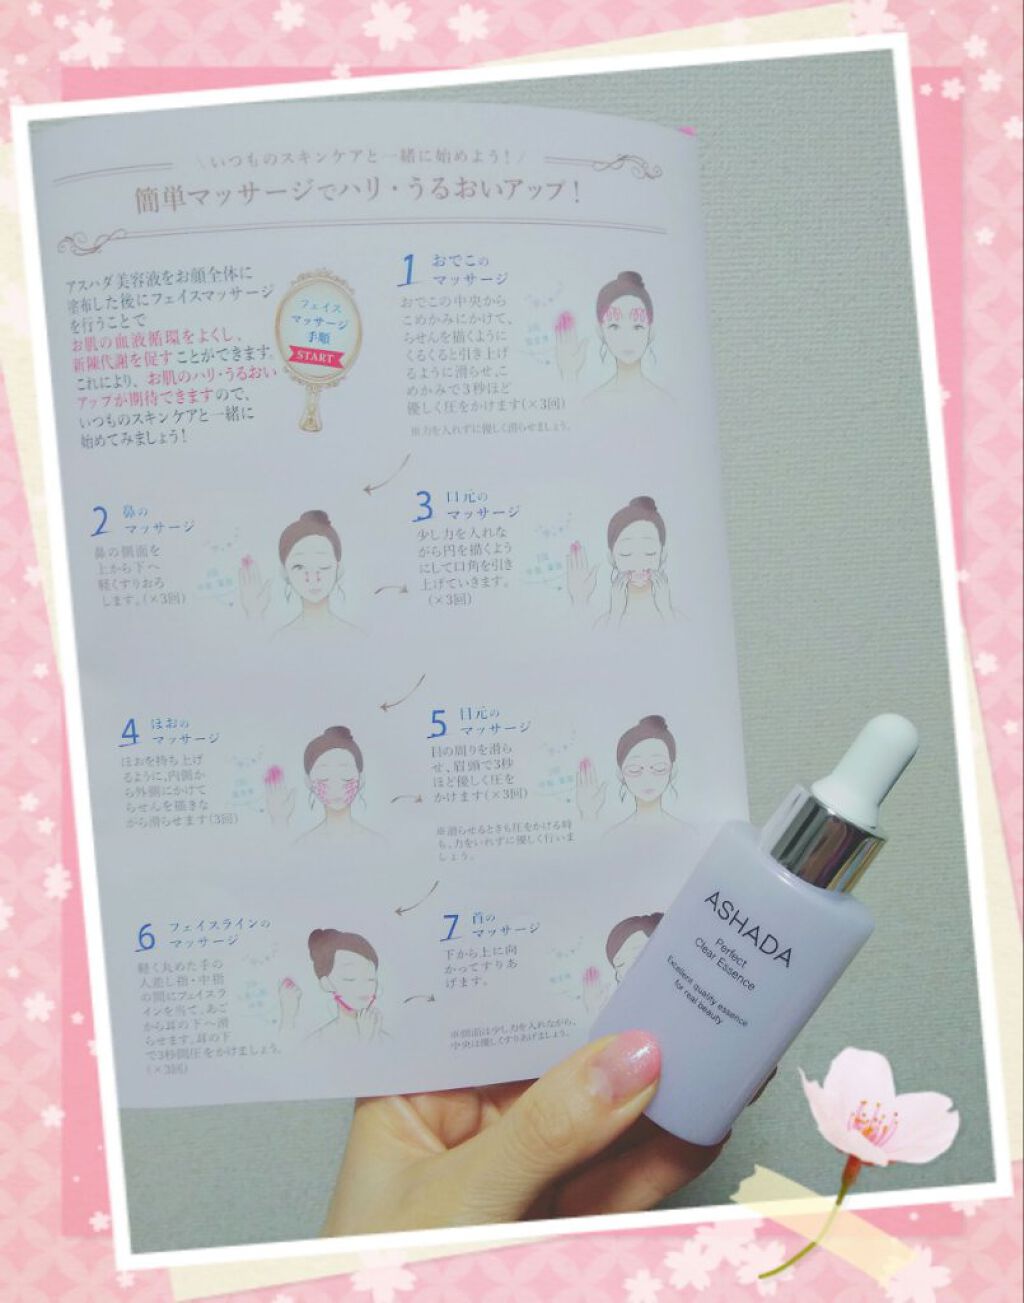 \いつものスキンケアと一緒に始めよう!/
簡単マッサージでハリ・うるおいアップ!
アスハダ美容液をお顔全体に
塗布した後にフェイスマッサージ
を行うことで
お肌の血液循環をよくし、
新陳代謝を促すことができます。
これにより、お肌のハリ・うるおい
アップが期待できますので、
いつものスキンケアと一緒に
始めてみましょう!
フェイス
マッサージ
手順
START
1 おでこの
マッサージ
おでこの中央から
こめかみにかけて、
らせんを描くように
くるくると引き上げ
るように滑らせ、こ
めかみで3秒ほど
優しく圧をかけます(×3回)
※力を入れずに優しく滑らせましょう。
2 鼻の
マッサージ
鼻の側面を
上から下へ
軽くすりおろ
します。(×3回)
3 口元の
マッサージ
少し力を入れな
がら円を描くよう
にして口角を引き
上げていきます。
(×3回)
4 ほおの
マッサージ
ほおを持ち上げ
るように、内側か
ら外側にかけて
らせんを描きな
がら滑らせます(3回)
5 目元の
マッサージ
目の周りを滑ら
せ、眉頭で3秒
ほど優しく圧を
かけます(×3回)
※滑らせるときも圧をかける時
も、力をいれずに優しく行いま
しょう。
6 フェイスラインの
マッサージ
軽く丸めた手の
人差し指・中指
の間にフェイスラ
インを当て、あご
から耳の下へ滑
らせます。耳の下
で3秒間圧をかけましょう。
(×3回)
7 首の
マッサージ
下から上に向
かってすりあ
げます。
※側面は少し力を入れながら、
中央は優しくすりあげましょう。
ASHADA
Perfect
Clear Essence
Excellent quality essence
for real beauty